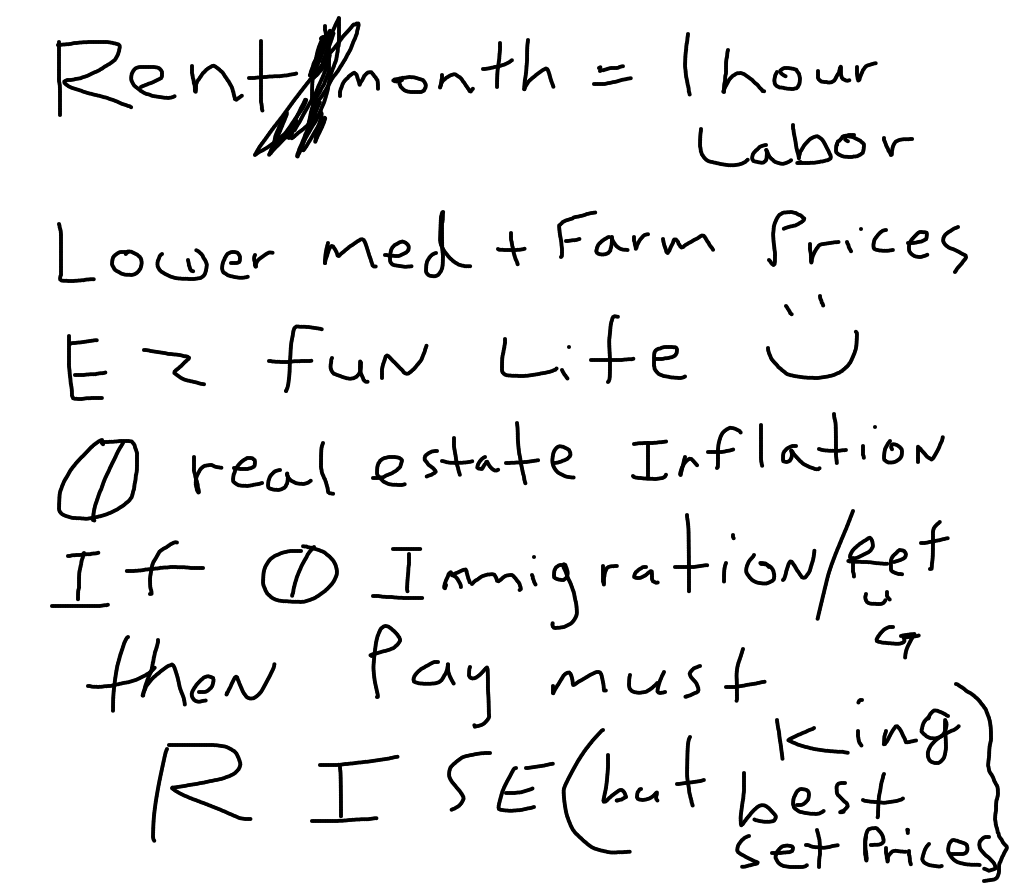 Rent/month = 1 hour
Labor
Lower med + Farm Prices
EZ fun Life :)
0 real estate Inflation
If 0 Immigration/Ref
UG
then Pay must
RISE (but King
best
set Prices)